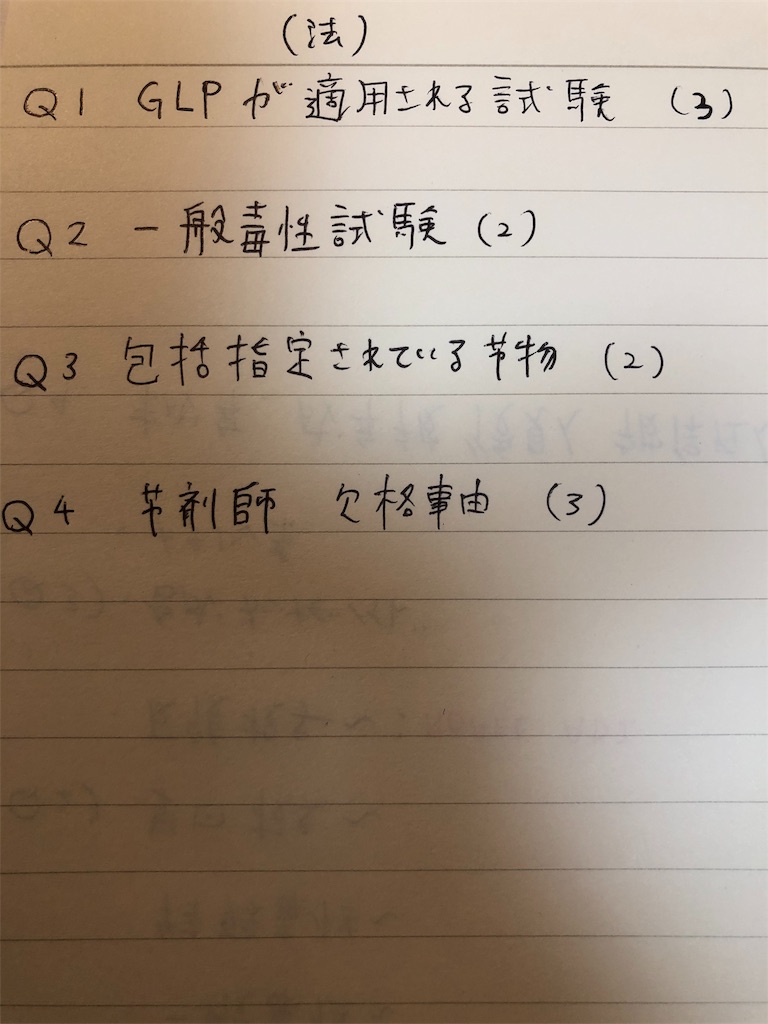 (法)
Q1 GLPが適用される試験 (3)
Q2 一般毒性試験 (2)
Q3 包括指定されている芐物 (2)
Q4 芐剤師 欠格事由 (3)